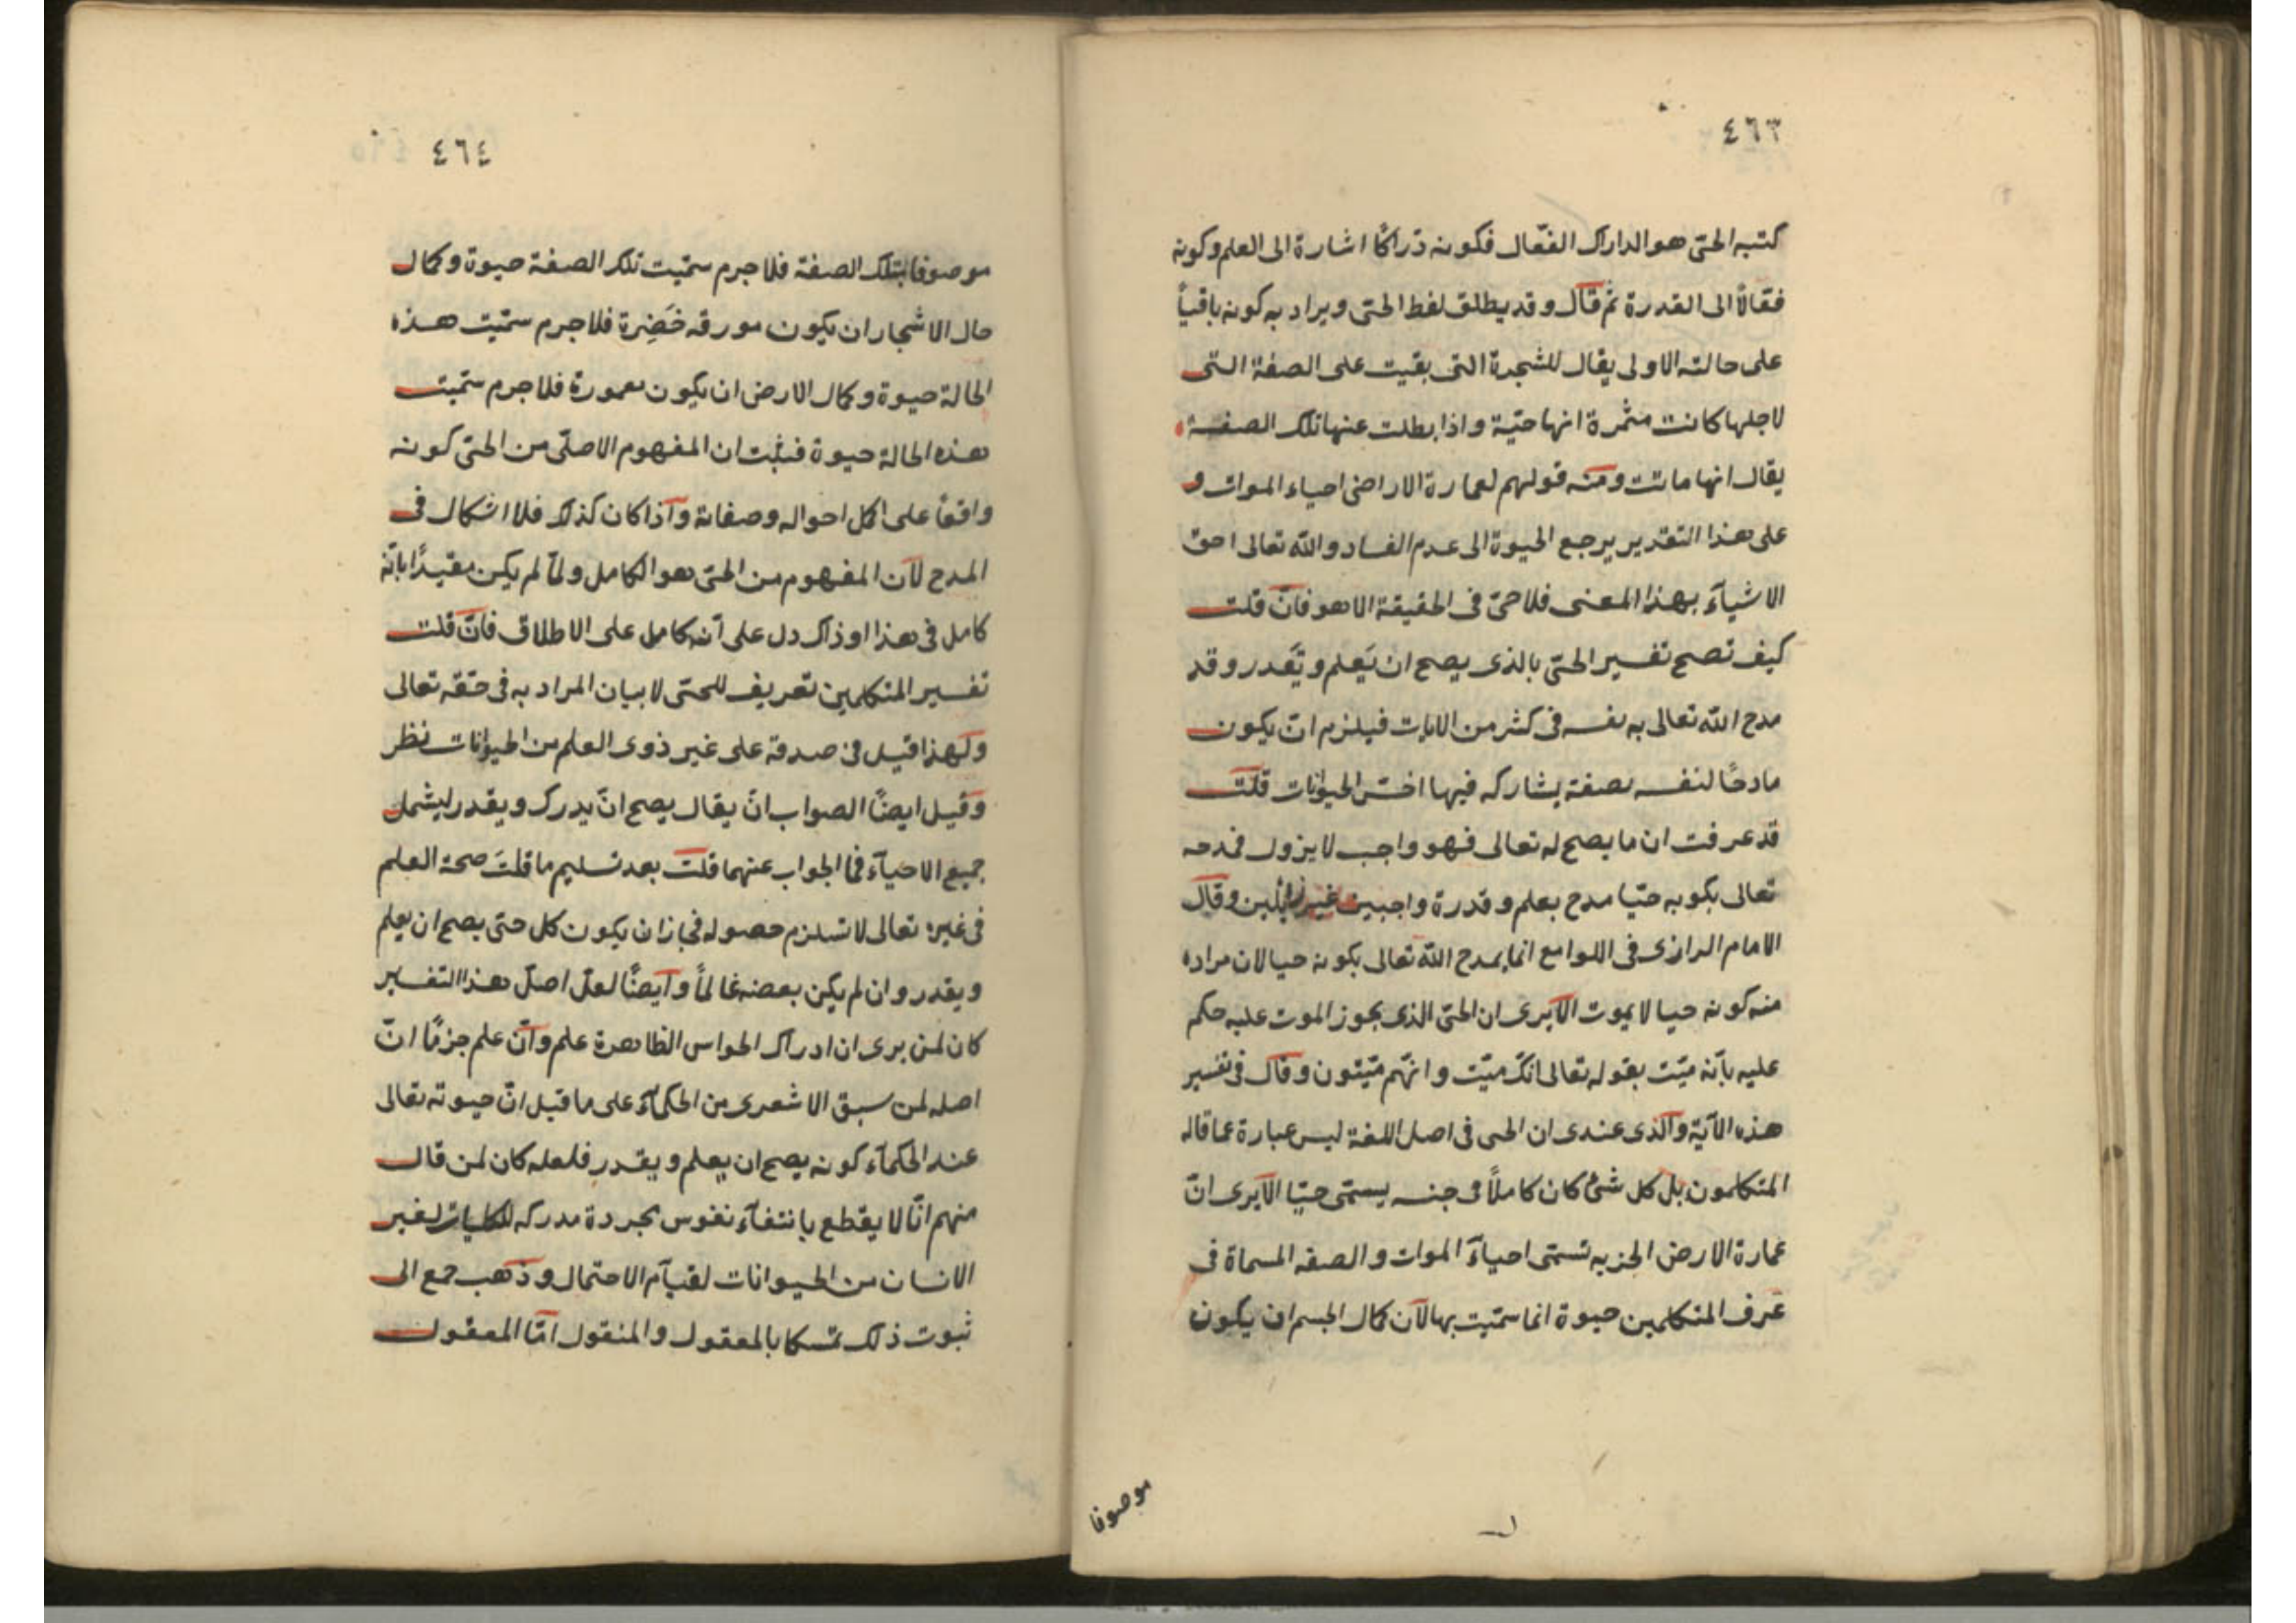 ٤٦٣
كتبه الحىّ هو الدارك الفعّال فكونه درّاكًا اشارة الى العلم وكونه
فقالاً الى القدرة ثم قال وقد يطلق لفظ الحىّ ويراد به كونه باقياً
على حالته الاولى يقال للشجرة التى بقيت على الصفة التى
لاجلها كانت مثمرة انها حيّة واذا بطلت عنها تلك الصفة
يقال انها ماتت ومنه قولهم لعمارة الاراضى احياء الموات و
على هذا التقدير يرجع الحيوة الى عدم الفساد والله تعالى احق
الاشيآء بهذا المعنى فلا حىّ فى الحقيقة الا هو فانّ قلت
كيف تصح تفسير الحىّ بالذى يصح ان يَعلم ويَقدر وقد
مدح الله تعالى به نفسه فى كثر من الايات فيلزم انّ يكون
مادحًا لنفسه بصفة يشاركه فيها اخسّ الحيوانات قلت
قد عرفت ان ما يصح له تعالى فهو واجب لا يزول فمدحه
تعالى بكونه حيّا مدح بعلم وقدرة واجبين غير زائلين وقال
الامام الرازى فى اللوامع انما يمدح الله تعالى بكونه حيا لان مراده
منه كونه حيا لا يموت الاّ يرى ان الحىّ الذى يجوز الموت عليه حكم
عليه بأنّه ميّت بقوله تعالى انكّ ميّت وانهّم ميّتون وقال فى تفسير
هذه الآية والّذى عندى ان الحى فى اصل اللغة ليس عبارة عما قاله
المتكلمون بل كل شئ كان كاملاً فى جنسه يسمّى حيّا الاّ يرى انّ
عمارة الارض الخربه تسمّى احياءَ الموات والصفه المسماة فى
عرف المتكلمين حيوة انما سمّيت بها لآن كمال الجسم ان يكون
موصوفا
٤٦٤
موصوفا بتلك الصفة فلا جرم سمّيت تلك الصفة حيوة وكمال
حال الاشجار ان يكون مورقه خَضِرة فلا جرم سمّيت هذه
الحالة حيوة وكمال الارض ان يكون معمورة فلا جرم سمّيت
هذه الحالة حيوة فثبت ان المفهوم الاصلىّ من الحىّ كونه
واقفاً على اكمل احواله وصفاته وآذا كان كذلك فلا اشكال فى
المدح لآن المفهوم من الحىّ هو الكامل ولمّا لم يكن مقيدًا بانّه
كامل فى هذا او ذاك دل على انّه كامل على الاطلاق فانّ قلت
تفسير المتكلمين تعريف للحىّ لا بيان المراد به فى حقّه تعالى
ولهذا قيل فى صدقه على غير ذوى العلم من الحيوانات نظر
وقيل ايضًا الصواب انّ يقال يصح انّ يدرك ويقدر ليشمل
جميع الاحيآء فما الجواب عنهما قلت بعد تسليم ما قلتَ صحة العلم
فى غيره تعالى لا تستلزم حصوله فجاز ان يكون كل حىّ يصح ان يعلم
ويقدر وان لم يكن بعضه عالماً وآيضًا لعل اصل هذا التفسير
كان لمن يرى ان ادراك الحواس الظاهرة علم وآنّ علم جزمًا انّ
اصله لمن سبق الاشعرى من الحكمآء على ما قيل انّ حيوته تعالى
عند الحكمآء كونه يصح ان يعلم ويقدر فلعله كان لمن قال
منهم انّا لا يقطع بانتفآء نفوس مجردة مدركه للكليات لغير
الانسان من الحيوانات لقيآم الاحتمال وذهب جمع الى
ثبوت ذلك تمسكا بالمعقول والمنقول امّا المعقول